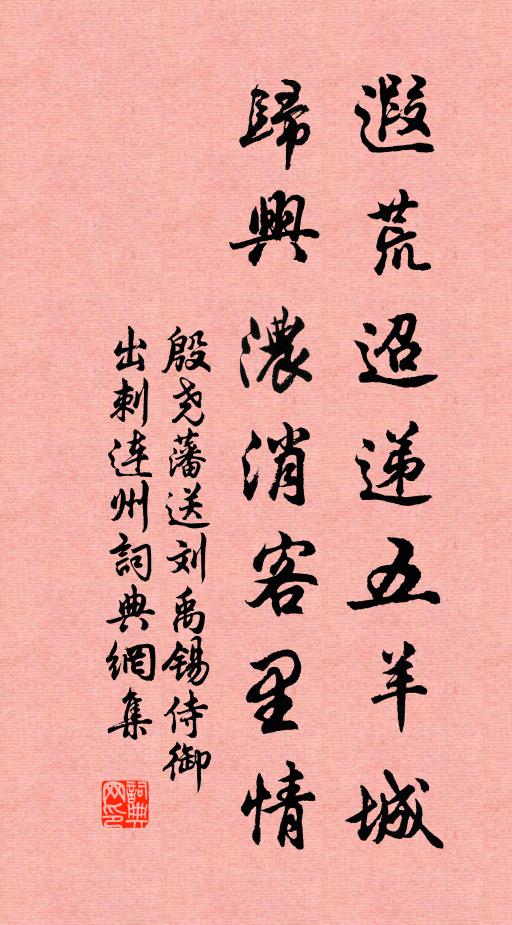 遐荒迢递五羊城
歸興濃消客里情
殷尧藩送刘禹锡侍御
出刺连州詞典網集
詞典
网印